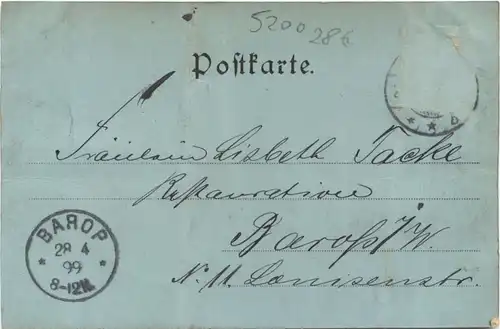 5200
286
Postkarte.
Fräulein Lisbeth Tacke
Restauration
Barop i/W.
N. 11. Louisenstr.
BAROP
28 4
99
8-12V.
* * b